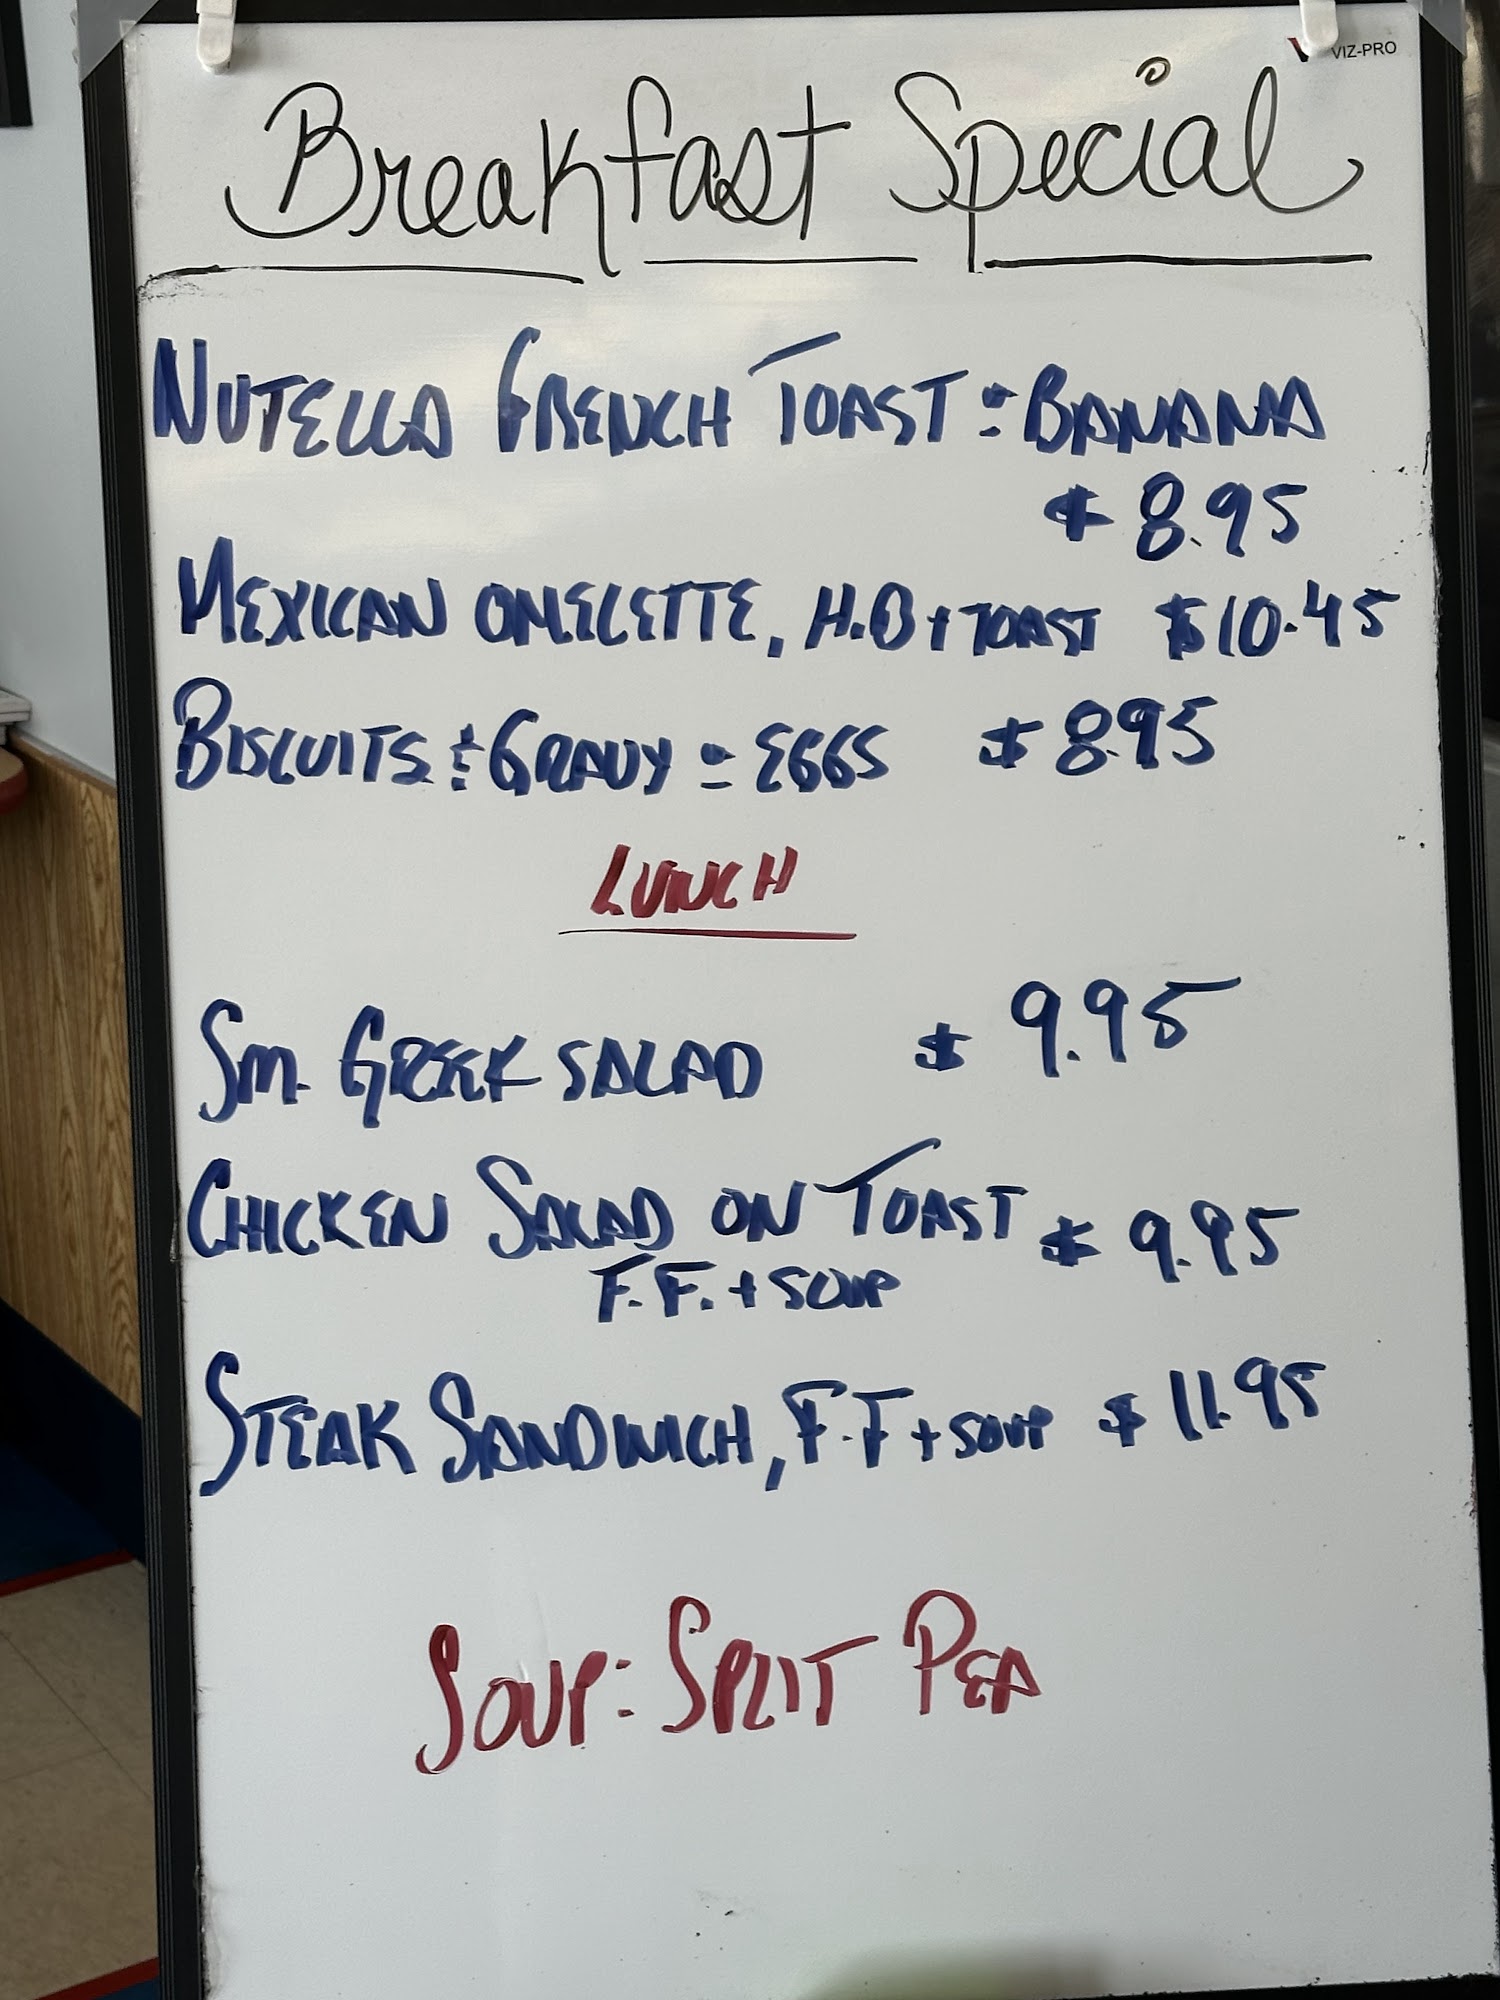 VIZ-PRO
Breakfast Special
NUTELLA FRENCH TOAST = BANANA
$ 8.95
MEXICAN OMELETTE, H.B + TOAST $10.45
BISCUITS & GRAVY = EGGS $ 8.95
LUNCH
SM. GREEK SALAD $ 9.95
CHICKEN SALAD ON TOAST $ 9.95
F.F. + SOUP
STEAK SANDWICH, F.F + SOUP $ 11.95
SOUP: SPLIT PEA